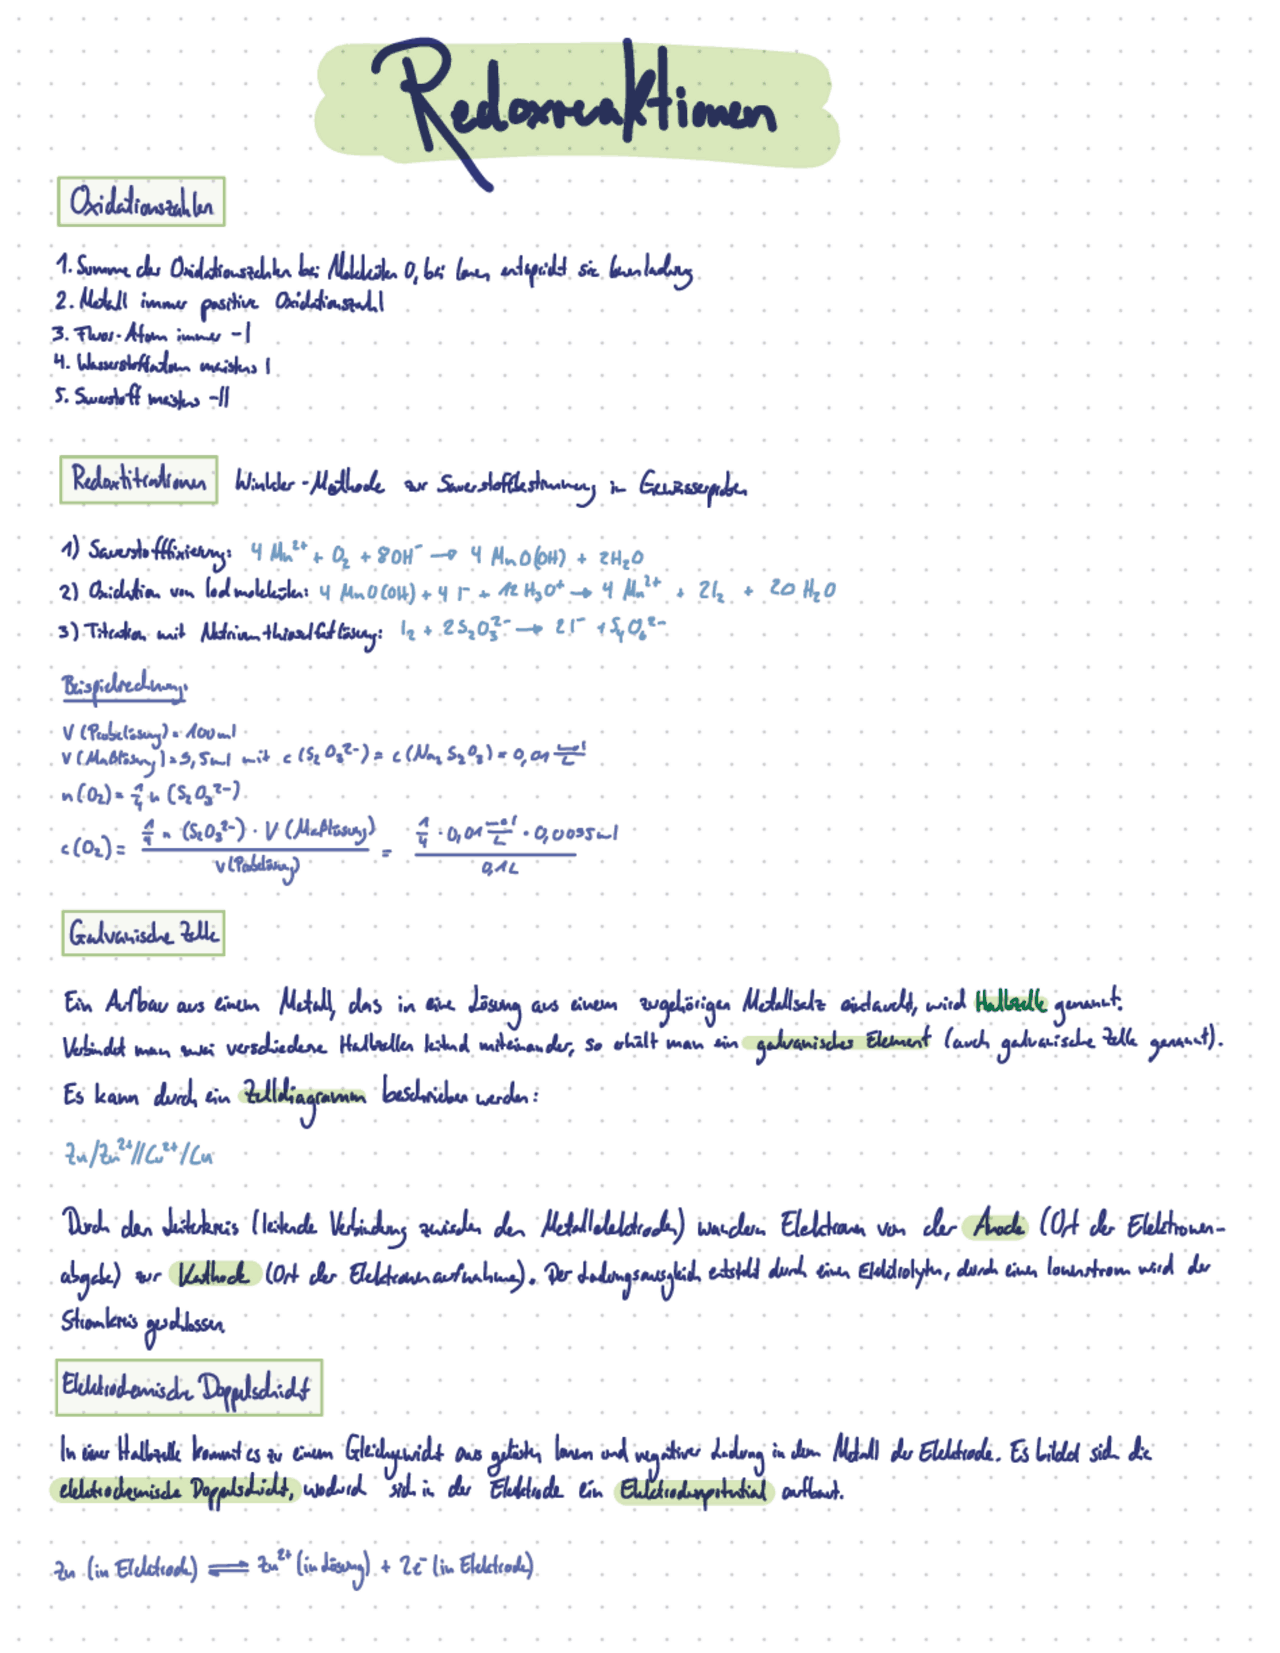 Redoxreaktionen
Oxidationszahlen
1. Summe der Oxidationszahlen bei Molekülen 0, bei Ionen entspricht sie Ionenladung
2. Metall immer positive Oxidationszahl
3. Fluor-Atom immer -I
4. Wasserstoffatom meistens I
5. Sauerstoff meistens -II
Redoxtitrationen Winkler-Methode zur Sauerstoffbestimmung in Gewässerproben
1) Sauerstofffixierung: 4 Mn²⁺ + O₂ + 8OH⁻ → 4 MnO(OH) + 2H₂O
2) Oxidation von Iodmolekülen: 4 MnO(OH) + 4 I⁻ + 12 H₃O⁺ → 4 Mn²⁺ + 2I₂ + 20 H₂O
3) Titration mit Natriumthiosulfatlösung: I₂ + 2S₂O₃²⁻ → 2I⁻ + S₄O₆²⁻
Beispielrechnung:
V (Probelösung) = 100ml
V (Maßlösung) = 9,5ml mit c (S₂O₃²⁻) = c (Na₂S₂O₃) = 0,01 mol/L
n(O₂) = 1/4 n (S₂O₃²⁻)
c(O₂) = 1/4 n (S₂O₃²⁻) · V (Maßlösung) / V(Probelösung) = 1/4 · 0,01 mol/L · 0,0095ml / 0,1L
Galvanische Zelle
Ein Aufbau aus einem Metall, das in eine Lösung aus einem zugehörigen Metallsalz eintaucht, wird Halbzelle genannt.
Verbindet man zwei verschiedene Halbzellen leitend miteinander, so erhält man ein galvanisches Element (auch galvanische Zelle genannt).
Es kann durch ein Zelldiagramm beschrieben werden:
Zn/Zn²⁺//Cu²⁺/Cu
Durch den Leiterkreis (leitende Verbindung zwischen den Metallelektroden) wandern Elektronen von der Anode (Ort der Elektronen-
abgabe) zur Kathode (Ort der Elektronenaufnahme). Der Ladungsausgleich entsteht durch einen Elektrolyten, durch einen Ionenstrom wird der
Stromkreis geschlossen.
Elektrochemische Doppelschicht
In einer Halbzelle kommt es zu einem Gleichgewicht aus gelösten Ionen und negativer Ladung in dem Metall der Elektrode. Es bildet sich die
elektrochemische Doppelschicht, wodurch sich in der Elektrode ein Elektrodenpotential aufbaut.
Zn (in Elektrode) ⇌ Zn²⁺ (in Lösung) + 2e⁻ (in Elektrode)